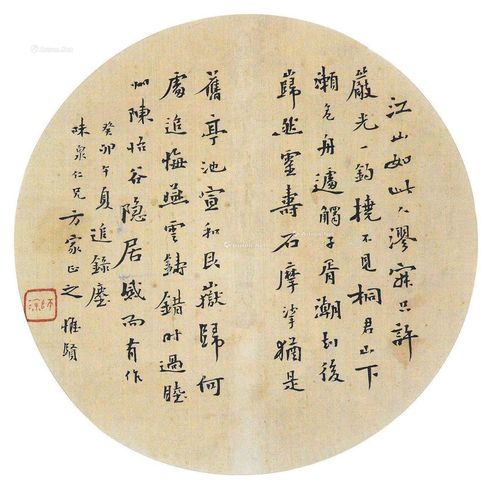 江山如此人漻寂只許
嚴光一釣橈不見桐君山下
瀨危舟遽觸子胥潮刦後
歸然靈壽石摩挲猶是
舊亭池宣和艮嶽歸何
處追悔燕雲鑄錯時過睦
州陳怡谷隐居感而有作
癸卯午自追錄塵
味泉仁兄方家正之 惟賢